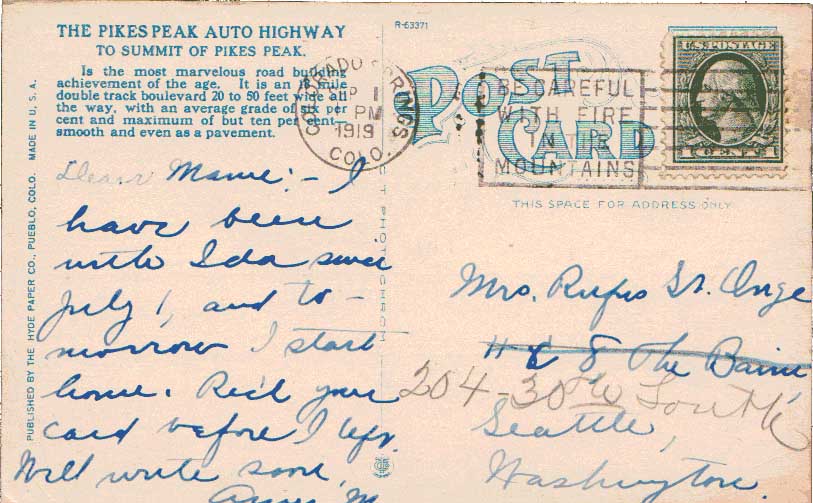 THE PIKES PEAK AUTO HIGHWAY
TO SUMMIT OF PIKES PEAK.
Is the most marvelous road building
achievement of the age. It is an 18 mile
double track boulevard 20 to 50 feet wide all
the way, with an average grade of six per
cent and maximum of but ten per cent—
smooth and even as a pavement.
PUBLISHED BY THE HYDE PAPER CO., PUEBLO, COLO. MADE IN U. S. A.
R-63371
POST
CARD
COLORADO SPRINGS
1
PM
1919
COLO.
BE CAREFUL
WITH FIRE
IN THE
MOUNTAINS
U.S. POSTAGE
1 CENT 1
THIS SPACE FOR ADDRESS ONLY
Dear Mame:- I
have been
with Ida since
July 1, and to-
morrow I start
home. Rec'd your
card before I left.
Will write soon,
Mrs. Rufus St. Onge
8 The
204-30th South
Seattle,
Washington.